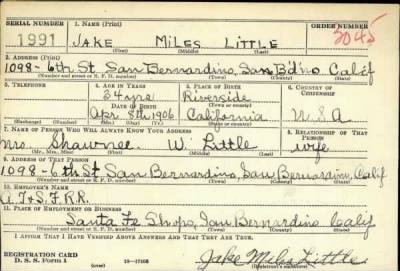 SERIAL NUMBER 1. NAME (Print) ORDER NUMBER
1991 JAKE MILES LITTLE 3045
(First) (Middle) (Last)
2. ADDRESS (Print)
1098 - 6th St San Bernardino, San Bd'no Calif
(Number and street or R. F. D. number) (Town) (County) (State)
3. TELEPHONE 4. AGE IN YEARS 5. PLACE OF BIRTH 6. COUNTRY OF CITIZENSHIP
34 yrs Riverside
DATE OF BIRTH (Town or county)
Apr. 8th 1906 California U.S.A
(Exchange) (No.) (Mo.) (Day) (Yr.) (State or country)
7. NAME OF PERSON WHO WILL ALWAYS KNOW YOUR ADDRESS 8. RELATIONSHIP OF THAT PERSON
Mrs. Shawnee W. Little wife
(Mr., Mrs., Miss) (First) (Middle) (Last)
9. ADDRESS OF THAT PERSON
1098 - 6th St San Bernardino, San Bernardino, Calif
(Number and street or R. F. D. number) (Town) (County) (State)
10. EMPLOYER'S NAME
A. T. & S. F. R.R.
11. PLACE OF EMPLOYMENT OR BUSINESS
Santa Fe Shops, San Bernardino Calif
(Number and street or R. F. D. number) (Town) (County) (State)
I AFFIRM THAT I HAVE VERIFIED ABOVE ANSWERS AND THAT THEY ARE TRUE.
REGISTRATION CARD
D. S. S. Form 1 (over) 16-17105 Jake Miles Little
(Registrant's signature)